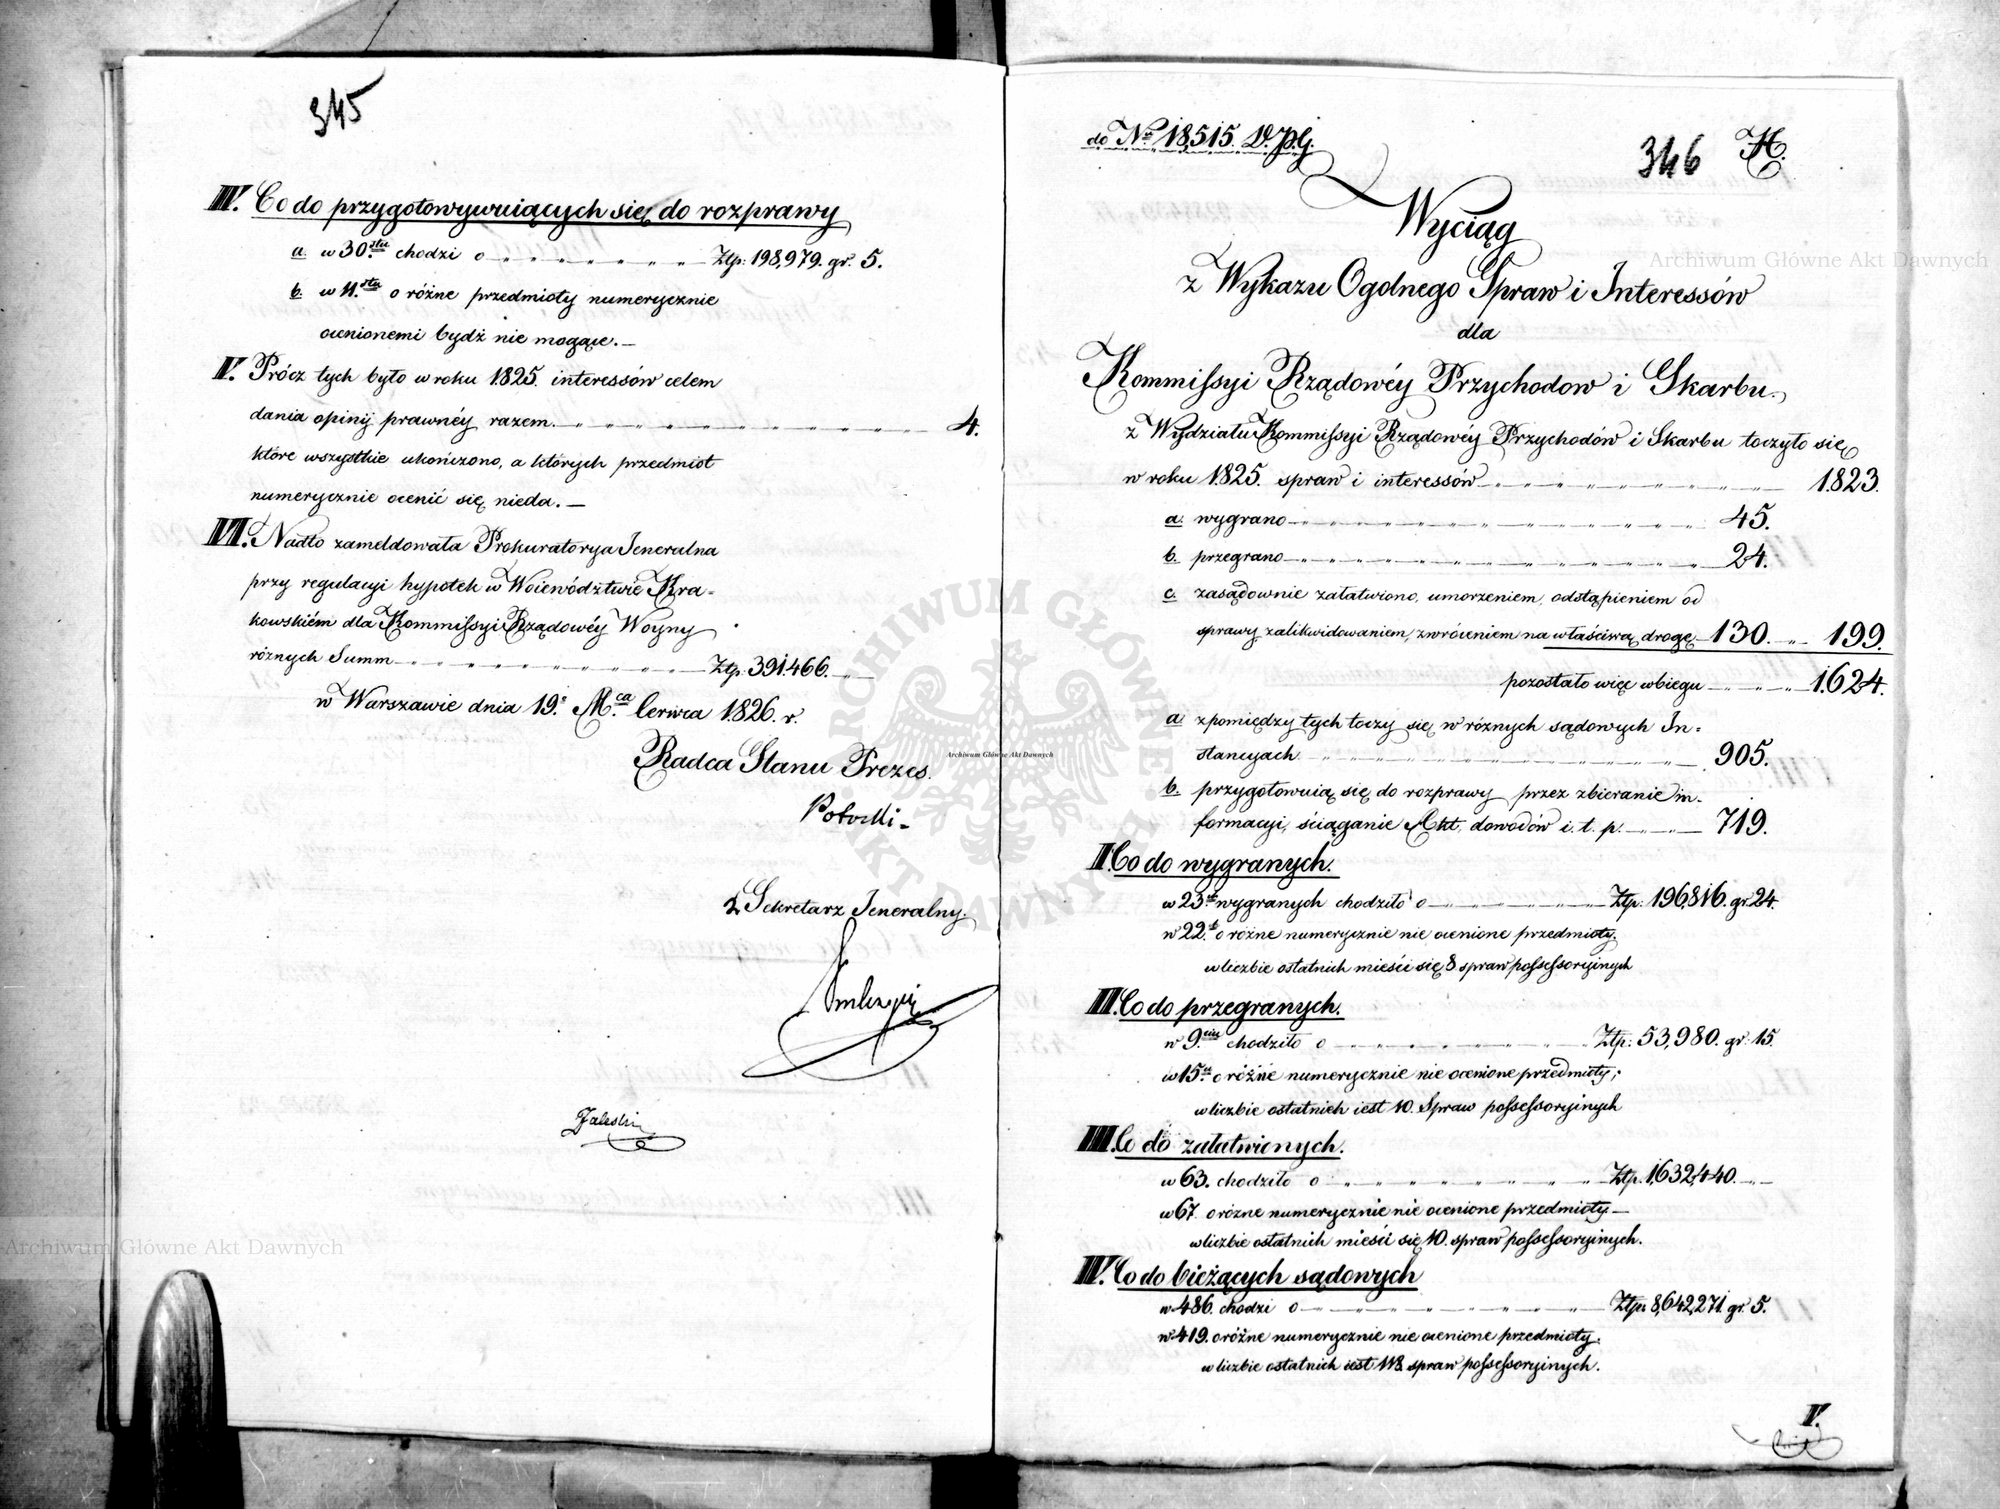 345
IV. Co do przygotowywuiących się do rozprawy
a. w 30.stu chodzi o — „ — „ — Złp: 198,979. gr. 5.
b. w 11.stu o różne przedmioty numerycznie
ocenionemi bydź nie mogące. —
V. Prócz tych było w roku 1825. interessów celem
dania opinij prawnéy razem. — „ — „ — 4.
które wszystkie ukończono, a których przedmiot
numerycznie ocenić się nieda. —
VI. Nadto zameldowała Prokuratorya Jeneralna
przy regulacyi hypotek w Woiewództwie Kra-
kowskiém dla Kommissyi Rządowéy Woyny
różnych Summ — „ — „ — Złp. 391.466. — „ —
w Warszawie dnia 19. M.ca Czerwca 1826. r.
Radca Stanu Prezes.
Potocki
Sekretarz Jeneralny.
Zaleski
do No 18,515. D. p.G.
346 H.
Wyciąg
z Wykazu Ogolnego Spraw i Interessów
dla
Kommissyi Rządowéy Przychodow i Skarbu.
z Wydziału Kommissyi Rządowéy Przychodów i Skarbu toczyło się
w roku 1825. spraw i interessów — „ — „ — 1823.
a. wygrano — „ — „ — 45.
b. przegrano — „ — „ — 24.
c. zasądownie załatwiono, umorzeniem, odstąpieniem od
sprawy, zalikwidowaniem, zwróceniem na właściwą drogę — 130. — „ — 199.
pozostało więc wbiegu — „ — „ — 1624.
a. zpomiędzy tych toczy się w różnych sądowych In-
stancyach — „ — „ — 905.
b. przygotowuią się do rozprawy przez zbieranie in-
formacyi, ściąganie Akt, dowodów i. t. p. — „ — 719.
I. Co do wygranych.
w 23. wygranych chodziło o — „ — „ — Złp. 196,816. gr. 24.
w 22. o różne numerycznie nie ocenione przedmioty.
w liczbie ostatnich mieści się 8 spraw possessoryinych
II. Co do przegranych.
w 9.ciu chodziło o — „ — „ — Złp: 53,980. gr. 15.
w 15.u o różne numerycznie nie ocenione przedmioty;
w liczbie ostatnich iest 10. Spraw possessoryinych
III. Co do załatwionych.
w 63. chodziło o — „ — „ — Złp. 1,632,440. — „ —
w 67. o różne numerycznie nie ocenione przedmioty —
w liczbie ostatnich mieści się 10. spraw possessoryinych.
IV. Co do bieżących sądowych
w 486. chodzi o — „ — „ — Złp. 8,642,271 gr. 5.
w 419. o różne numerycznie nie ocenione przedmioty.
w liczbie ostatnich iest 118. spraw possessoryinych.
V.
Archiwum Główne Akt Dawnych
Archiwum Główne Akt Dawnych
Archiwum Główne Akt Dawnych
ARCHIWUM GŁÓWNE · AKT DAWNYCH ·